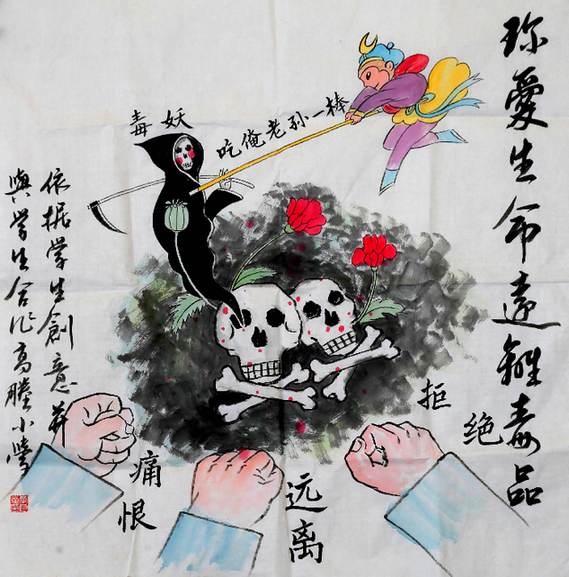 珎愛生命遠離毒品
毒妖
吃俺老孙一棒
依据学生創意并
與学生合作高塍小学
痛恨
远离
拒绝